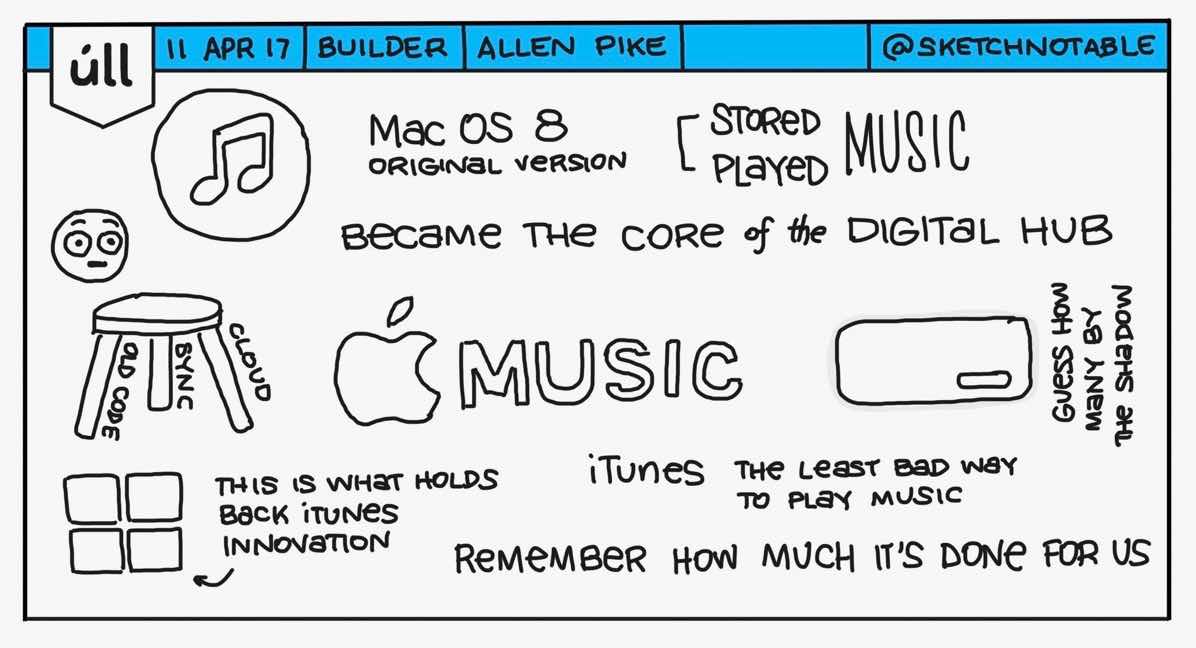 úll
11 APR 17
BUILDER
ALLEN PIKE
@SKETCHNOTABLE
Mac OS 8
ORIGINAL VERSION
STORED
PLAYED
MUSIC
BECAME THE CORE of the DIGITAL HUB
OLD CODE
SYNC
CLOUD
MUSIC
GUESS HOW
MANY BY
THE SHADOW
THIS IS WHAT HOLDS
BACK iTUNES
INNOVATION
iTunes
THE LEAST BAD WAY
TO PLAY MUSIC
REMEMBER HOW MUCH IT'S DONE FOR US